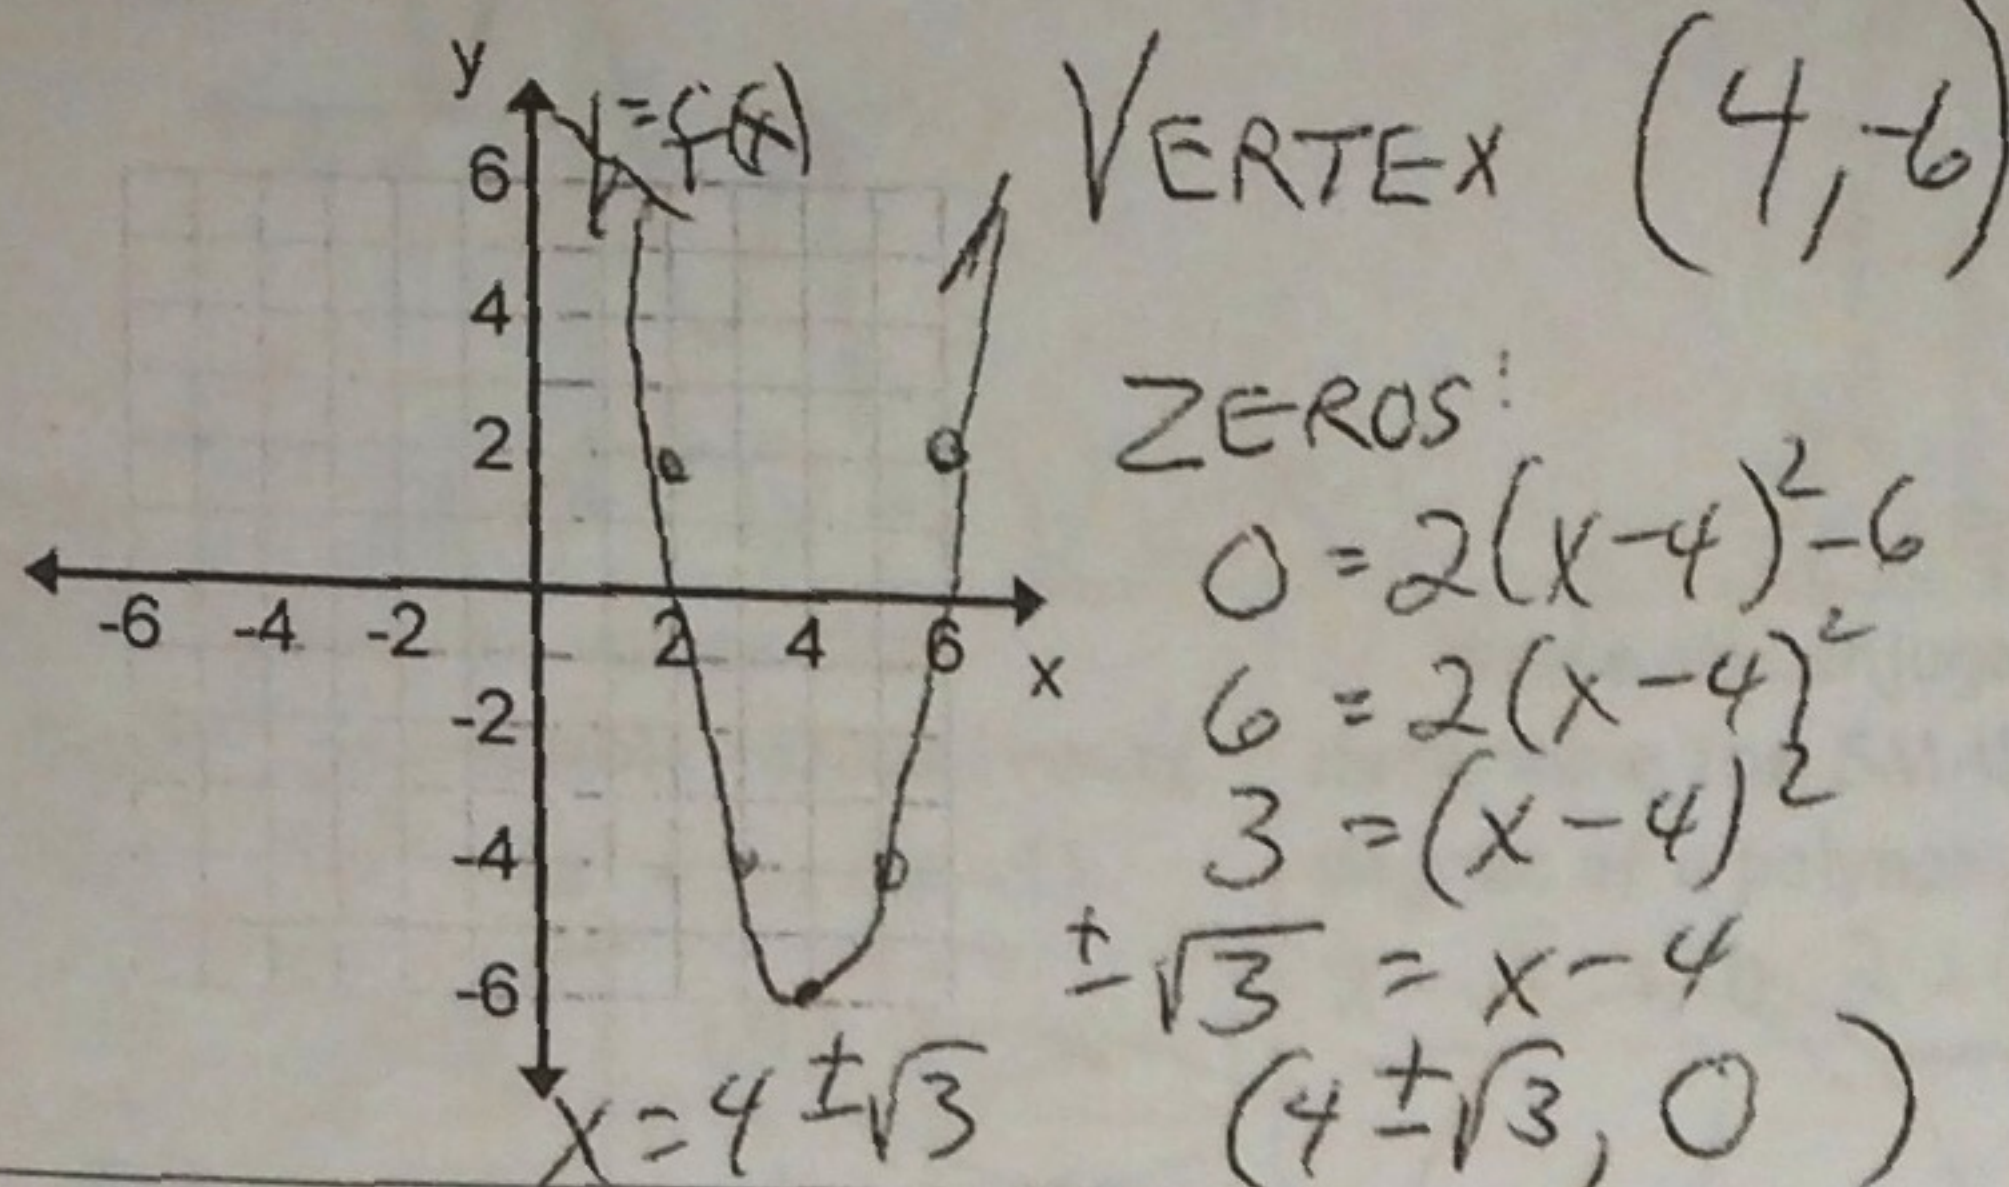 y
y=f(x)
6
4
2
-6 -4 -2 2 4 6
x
-2
-4
-6
x=4±√3
VERTEX (4,-6)
ZEROS:
0=2(x-4)²-6
6=2(x-4)²
3=(x-4)²
±√3=x-4
(4±√3, 0)